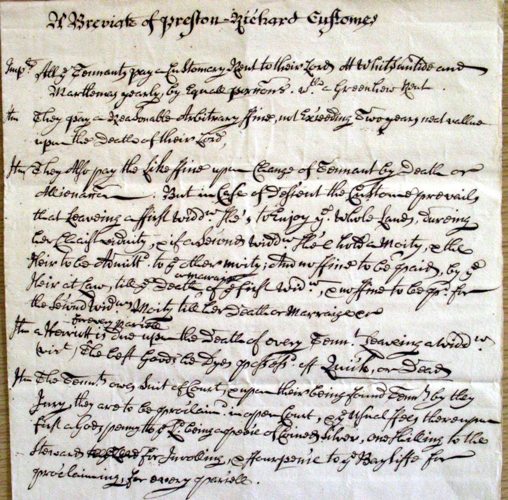 A Breviate of Preston-Richard Customes
Imp:s All ye Tennants pay a Customary Rent to their Lord At Whitsuntide and
Martlemas yearly, by Equall portions. wth a Greenhew Rent.
Itm They pay a Reasonable Arbitrary ffine, not Exceeding Two years neat vallue
upon the Death of their Lord.
Itm They Also pay the Like ffine upon Change of Tennant by Death or
Alienation. But in Case of Descent the Custome prevails
that Leaveing a ffirst widdw. She's to Enjoy ye. whole Lands, dureing
her Chast viduity, & if a Second widdw. She hold a Moity, & the
Heir to be Admitt: to ye other moity; And no ffine to be paid, by ye
Heir at law, till ye Death or Marraige of ye ffirst widw., & no ffine to be pd. for
the Second widws. Moity till her Death or Marraige
Itm a Herriott is Due upon the Death of every Tennt. Leaveing a widdw.
vizt. The best Goods he Dyes possess: off Quick, or Dead
Itm The Tennts. owes Suit of Court, & upon their being found Tennts. by the
Jury they are to be proclaim'd in open Court, & ye usual ffees thereupon
first a Gods penny to ye Ld. being a peice of Coined Silver, one shilling to the
Steward for Inrolling, & ffourpence to ye Bayliffe for
proclaiming, for every parcell.